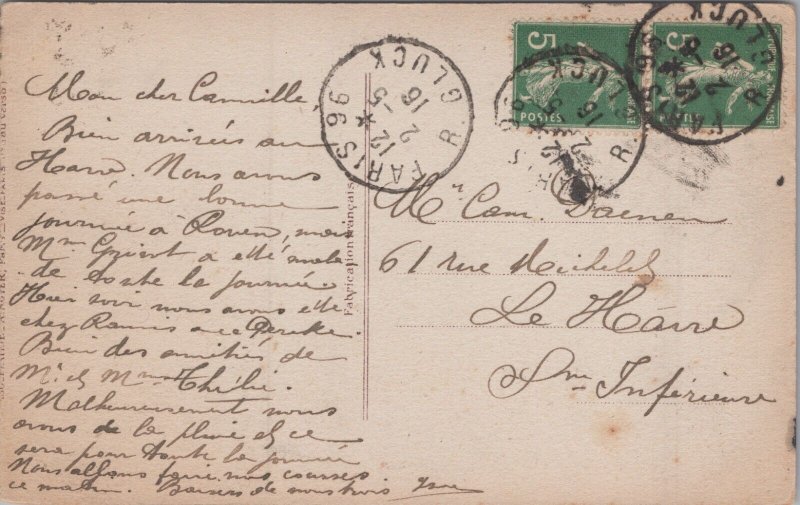 Mon cher Camille
Bien arrivées au
Havre. Nous avons
passé une bonne
journée à Rouen, mais
Mme a été mala-
de toute la journée.
Hier soir nous avons été
chez avec
Bien des amitiés de
Mr et Mme
Malheureusement nous
avons de la pluie et ce
sera pour toute la journée
Nous allons faire nos courses
ce matin. Baisers de nous trois
Fabrication française
PARIS 96 R. GLUCK
12 * 2 -5 16
5
POSTES
5
PARIS 96 R. GLUCK
Mr Cam. Daenen
61 rue Michelet
Le Hâvre
Sne Inférieure